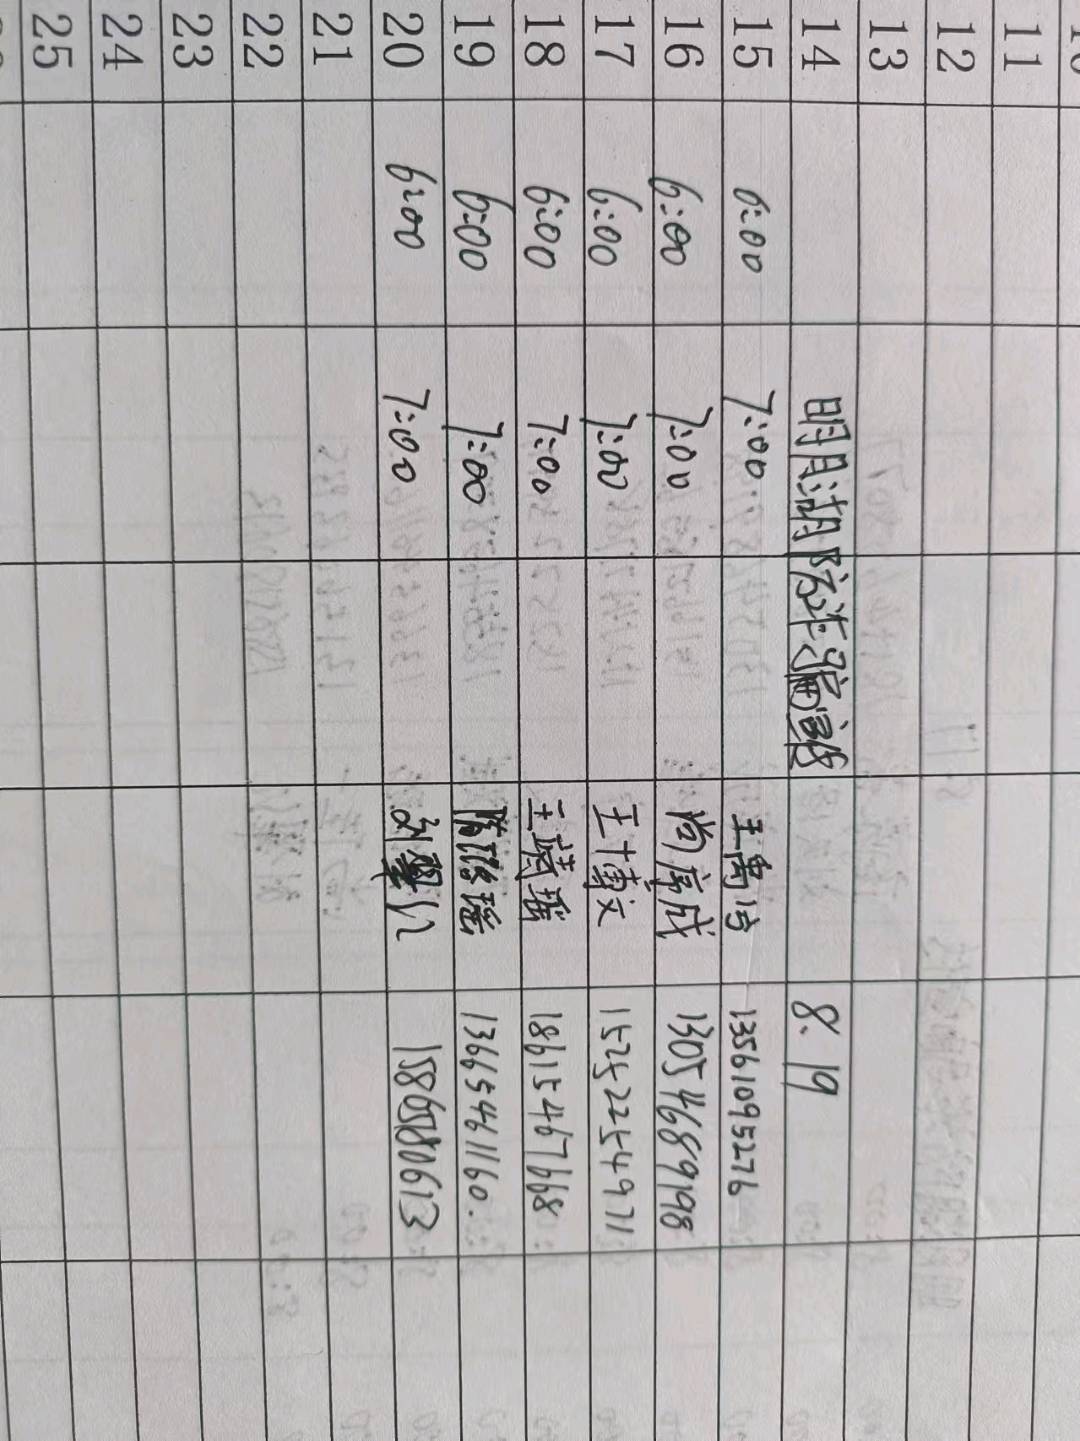 11
12
13
14 明月湖防诈骗宣传 8.19
15 6:00 7:00 王禹诺 13561095276
16 6:00 7:00 尚彦成 13054689198
17 6:00 7:00 王博文 15252254971
18 6:00 7:00 王婧瑶 18615467668
19 6:00 7:00 瑶 13665461160.
20 6:00 7:00 刘 15865880613
21
22
23
24
25